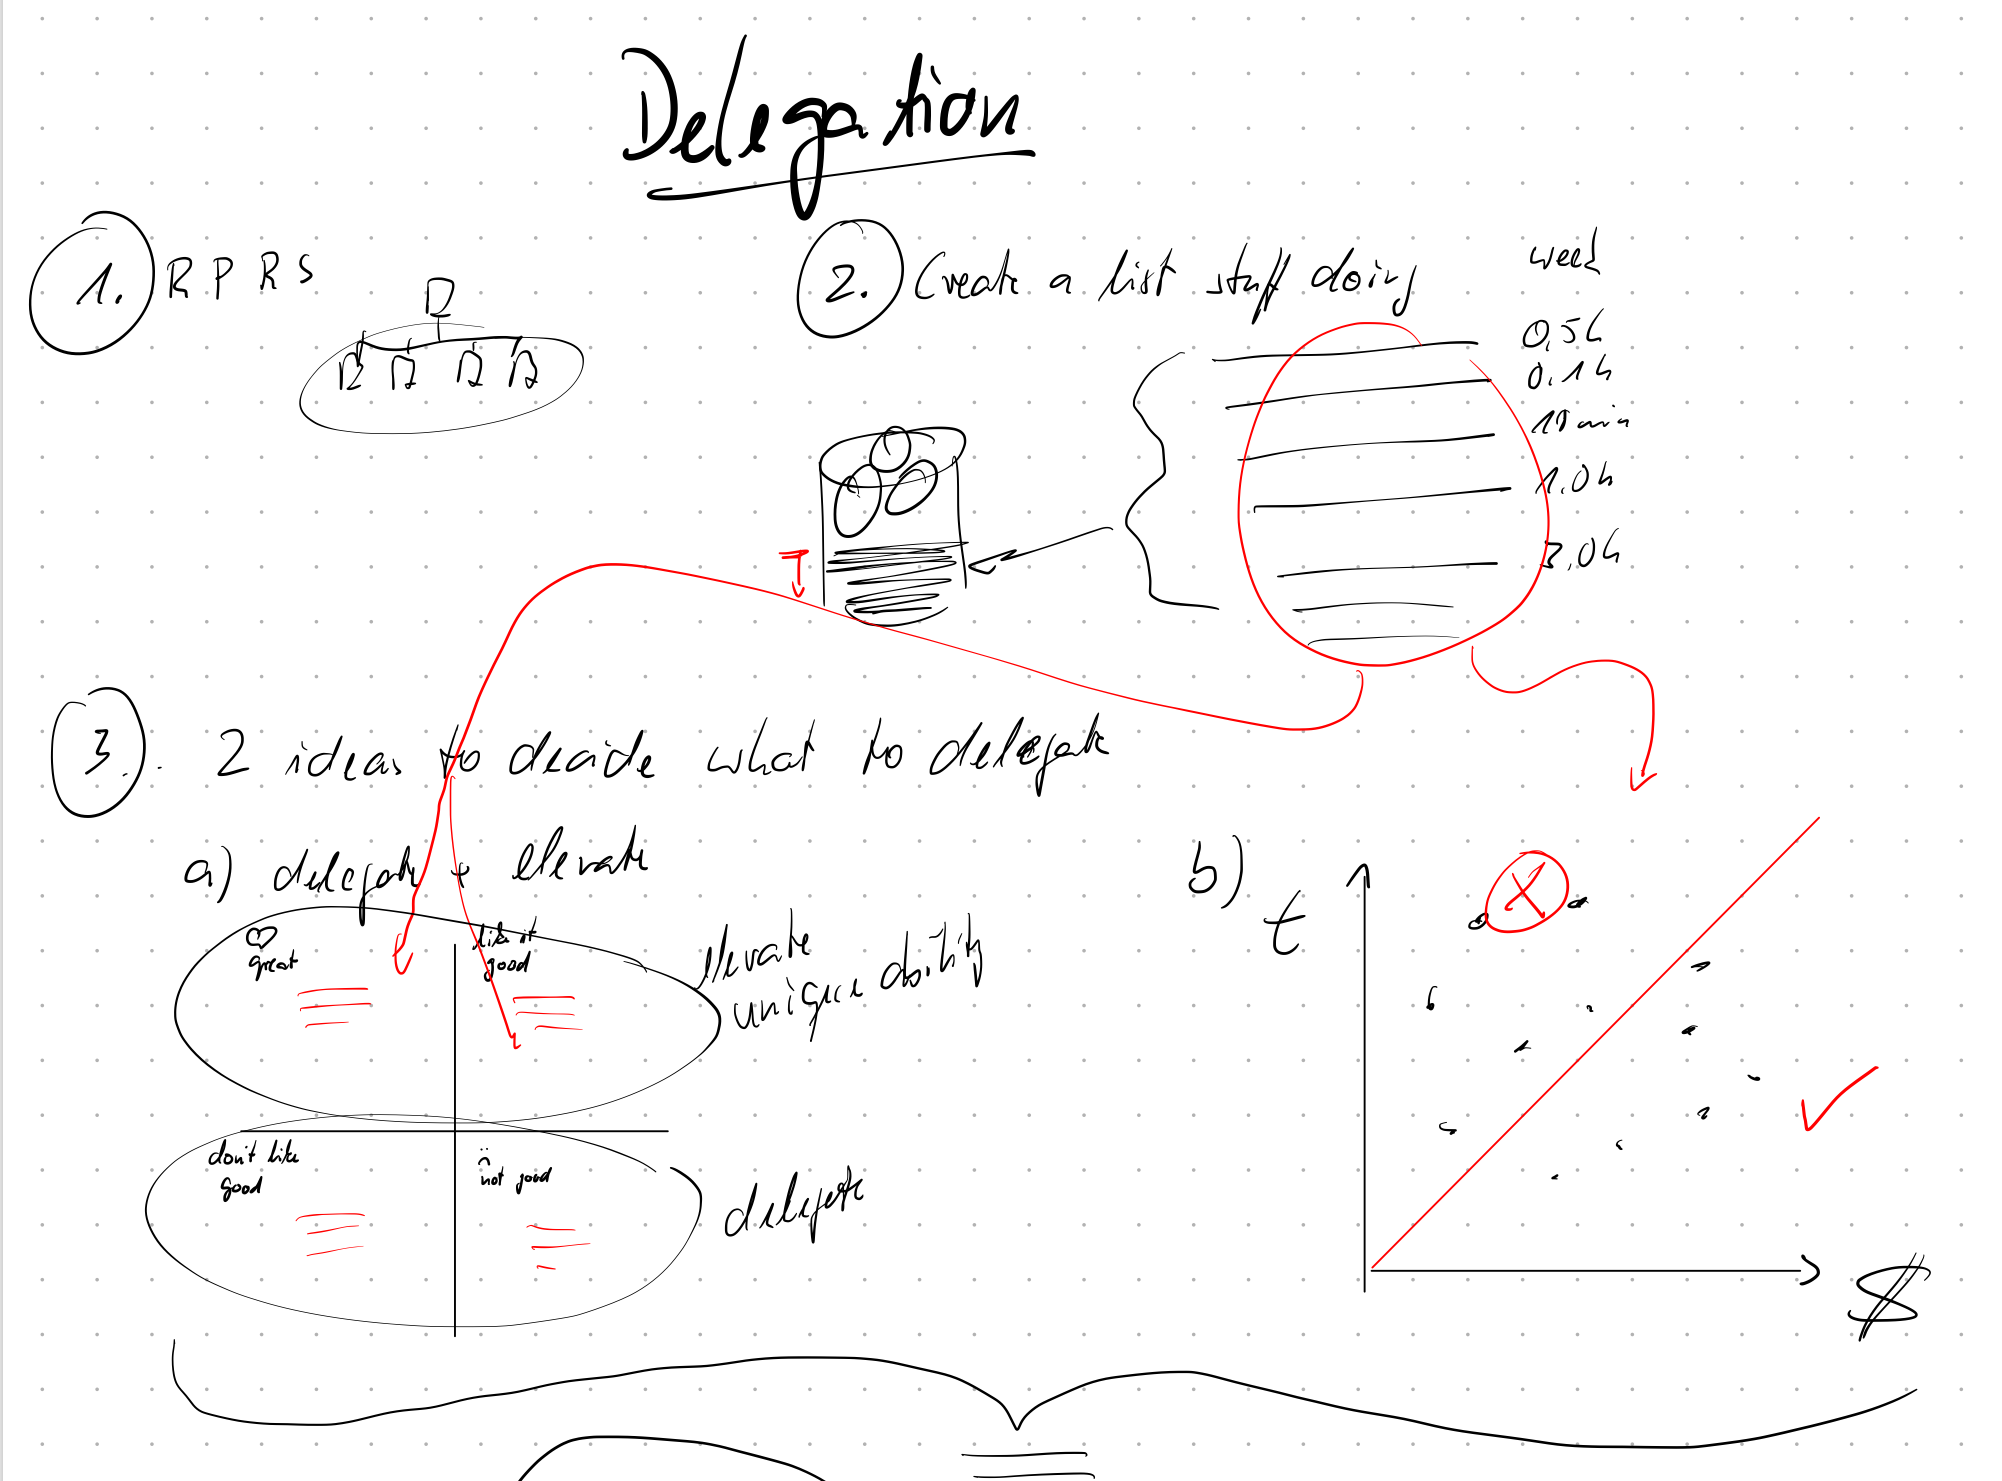 Delegation
1. R P R S
2. Create a list stuff doing
week
0,5h
0,1h
10 min
1,0h
3,0h
3. 2 ideas to decide what to delegate
a) delegate + elevate
great
like it
good
elevate
unique ability
don't like
good
not good
delegate
b)
t
$